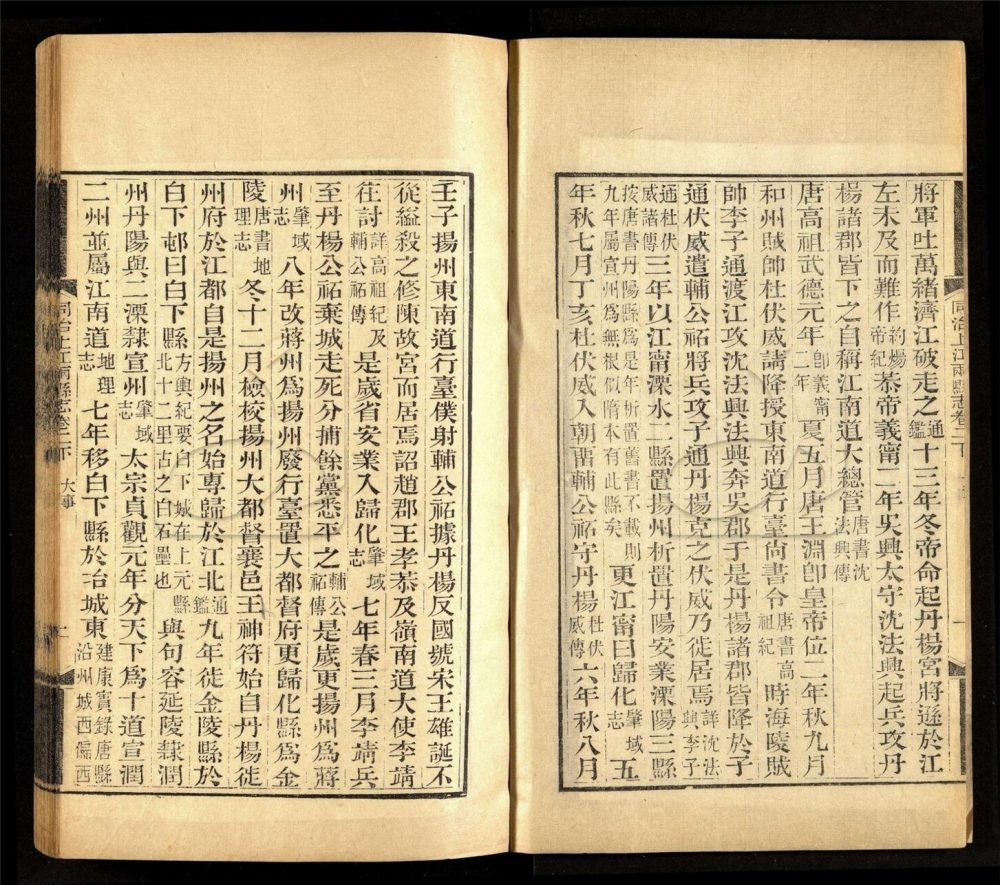 將軍吐萬緒濟江破走之通鑑十三年冬帝命起丹楊宮將遜於江
左未及而難作約煬帝紀恭帝義甯二年吳興太守沈法興起兵攻丹
楊諸郡皆下之自稱江南道大總管唐書沈法興傳
唐高祖武德元年卽義甯二年夏五月唐王淵卽皇帝位二年秋九月
和州賊帥杜伏威請降授東南道行臺尙書令唐書高祖紀時海陵賊
帥李子通渡江攻沈法興法興奔吳郡于是丹楊諸郡皆降於子
通伏威遣輔公祏將兵攻子通丹楊克之伏威乃徙居焉詳沈法興李子
通杜伏威諸傳三年以江甯溧水二縣置揚州析置丹陽安業溧陽三縣
按唐書丹陽縣爲是年析置舊書不載則九年屬宣州爲無根似隋本有此縣矣更江甯曰歸化肇域志五
年秋七月丁亥杜伏威入朝畱輔公祏守丹楊杜伏威傳六年秋八月
同治上江兩縣志卷二下
壬子揚州東南道行臺僕射輔公祏據丹楊反國號宋王雄誕不
從縊殺之修陳故宮而居焉詔趙郡王孝恭及嶺南道大使李靖
往討詳高祖紀及輔公祏傳是歲省安業入歸化肇域志七年春三月李靖兵
至丹楊公祏棄城走死分捕餘黨悉平之輔公祏傳是歲更揚州爲蔣
州肇域志八年改蔣州爲揚州廢行臺置大都督府更歸化縣爲金
陵唐書地理志冬十二月檢校揚州大都督襄邑王神符始自丹楊徙
州府於江都自是揚州之名始專歸於江北通鑑九年徙金陵縣於
白下邨曰白下縣方輿紀要白下城在上元縣北十二里古之白石壘也與句容延陵隸潤
州丹陽與二溧隸宣州肇域志太宗貞觀元年分天下爲十道宣潤
二州並屬江南道地理志七年移白下縣於冶城東建康實錄唐縣沿州城西儒西
同治上江兩縣志卷二下 大事